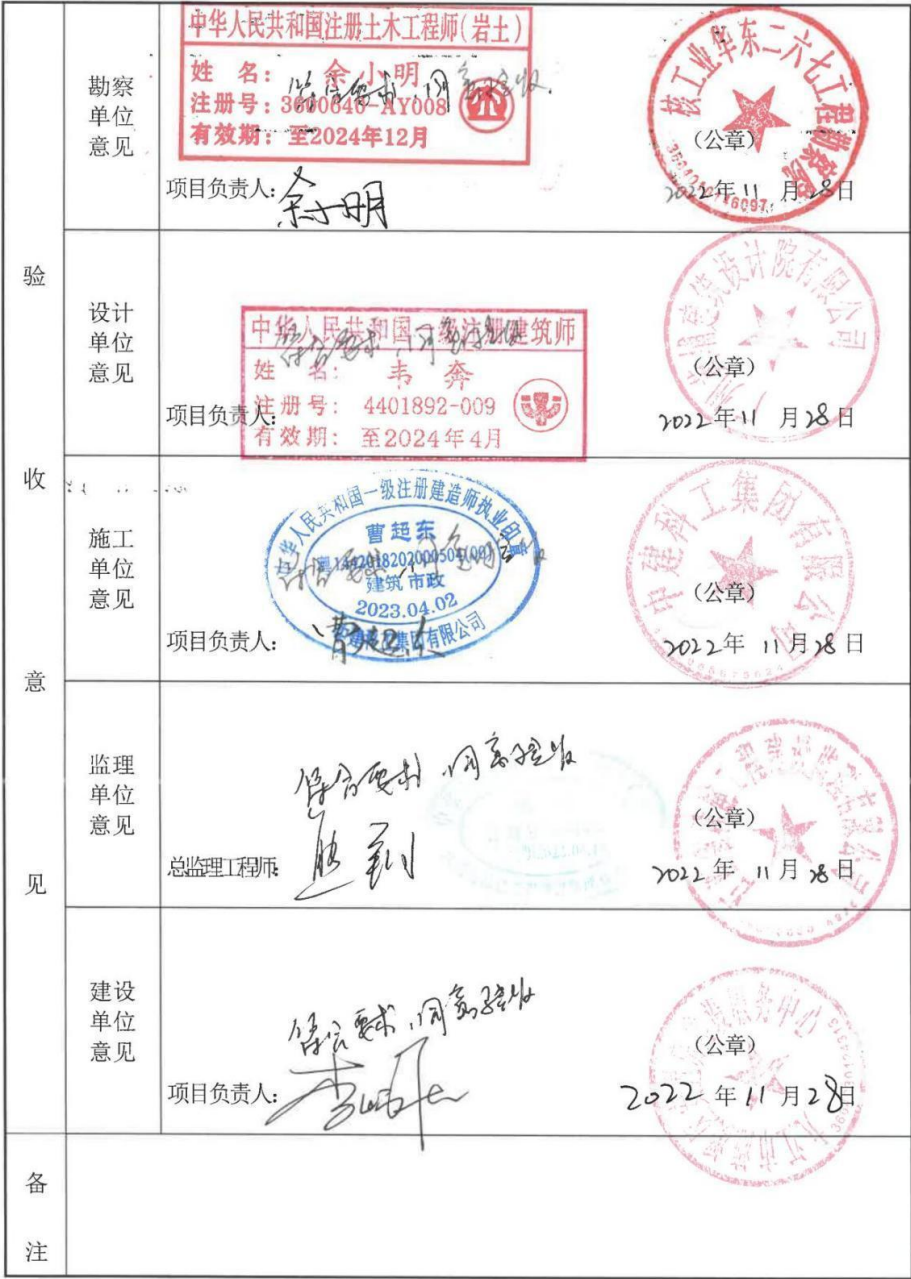 验收意见
勘察
单位
意见
中华人民共和国注册土木工程师(岩土)
姓 名: 余小明
注册号: 3600640-AY008
有效期: 至2024年12月
符合要求,同意验收.
核工业华东二六七工程勘察院
(公章)
项目负责人: 余小明
2022年11月28日
设计
单位
意见
中华人民共和国一级注册建筑师
姓 名: 韦奔
注册号: 4401892-009
有效期: 至2024年4月
符合要求,同意验收
建筑设计院有限公司
(公章)
项目负责人:
2022年11月28日
施工
单位
意见
中华人民共和国一级注册建造师执业印章
曹起东
建筑 市政
2023.04.02
中建科工集团有限公司
符合要求,同意验收
中建科工集团有限公司
(公章)
项目负责人: 曹起东
2022年11月28日
监理
单位
意见
符合要求,同意验收
(公章)
总监理工程师:
2022年11月28日
建设
单位
意见
符合要求,同意验收
服务中心
(公章)
项目负责人:
2022年11月28日
备注